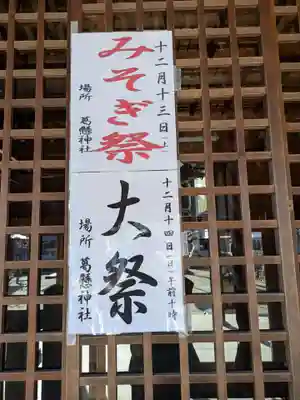 十二月十三日(土)
みそぎ祭
場所 葛懸神社
十二月十四日(日)午前十時
大祭
場所 葛懸神社